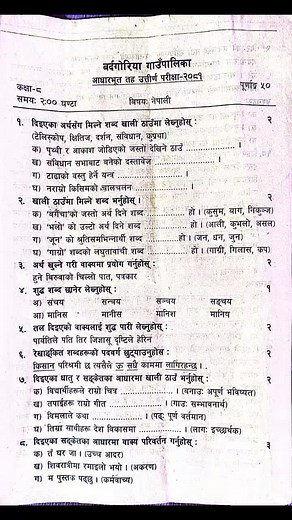 बर्दगोरिया गाउँपालिका
आधारभूत तह उत्तीर्ण परीक्षा-२०८१
कक्षा-८
पूर्णाङ्क ५०
समय: २:०० घण्टा
विषय: नेपाली
१. दिइएका अर्थसँग मिल्ने शब्द खाली ठाउँमा लेख्नुहोस् : २
(टेलिस्कोप, क्षितिज, दर्शन, संविधान, कुप्रथा)
क) पृथ्वी र आकाश जोडिएको जस्तो देखिने ठाउँ ..............
ख) संविधान सभाबाट बनेको दस्तावेज ..............
ग) टाढाको वस्तु हेर्ने यन्त्र ..............
घ) नराम्रो किसिमको चालचलन ..............
२. खाली ठाउँमा मिल्ने शब्द भर्नुहोस् : २
क) 'बगैँचा'को जस्तो अर्थ दिने शब्द ............ हो । (कुसुम, बाग, निकुञ्ज)
ख) 'भलो' को उल्टो अर्थ दिने शब्द ............ हो । (आली, कुभलो, असल)
ग) 'जून' को श्रुतिसमभिन्नार्थी शब्द ............ हो । (जन, धन, जुन)
घ) 'गाग्रो' शब्दको लघुतावाची शब्द ............ हो । (गाग्री, गिलास, कप)
३. अर्थ खुल्ने गरी वाक्यमा प्रयोग गर्नुहोस् : २
हुने बिरुवाको चिल्लो पात, पत्रकार
४. शुद्ध शब्द छानेर लेख्नुहोस् : १
अ) संचय सन्चय सञ्चय सङ्चय
आ) मानिस मानीस मानिश मानिष
५. तल दिइएको वाक्यलाई शुद्ध पारी लेख्नुहोस् : २
पार्वतिले पति तिर जिज्ञासू दृष्टिले हेरिनं
६. रेखाङ्कित शब्दहरूको पदवर्ग छुट्याउनुहोस् : २
किसान परिश्रमी छ त्यसैले ऊ सधैँ काममा लागिरहन्छ ।
७. दिइएका धातु र सङ्केतका आधारमा खाली ठाउँ भर्नुहोस् : २
क) विद्यार्थीहरूले राम्रो चित्र .............. । (बनाउ: अपूर्ण भविष्यत)
ख) तपाईंहरू राम्रो गीत .............. । (गाउ: सम्भावनार्थ)
ग) विमलाले कथा .............. । (पढ्: पूर्ण वर्तमान)
घ) तिम्रा साथीहरू देश विकासमा .............. । (लाग: इच्छार्थक)
८. दिइएका सङ्केतका आधारमा वाक्य परिवर्तन गर्नुहोस् : ३
क) तँ घर जा । (उच्च आदर)
ख) शिवरात्रीमा रमाइलो भयो । (अकरण)
ग) म पुस्तक पढ्छु । (कर्मवाच्य)